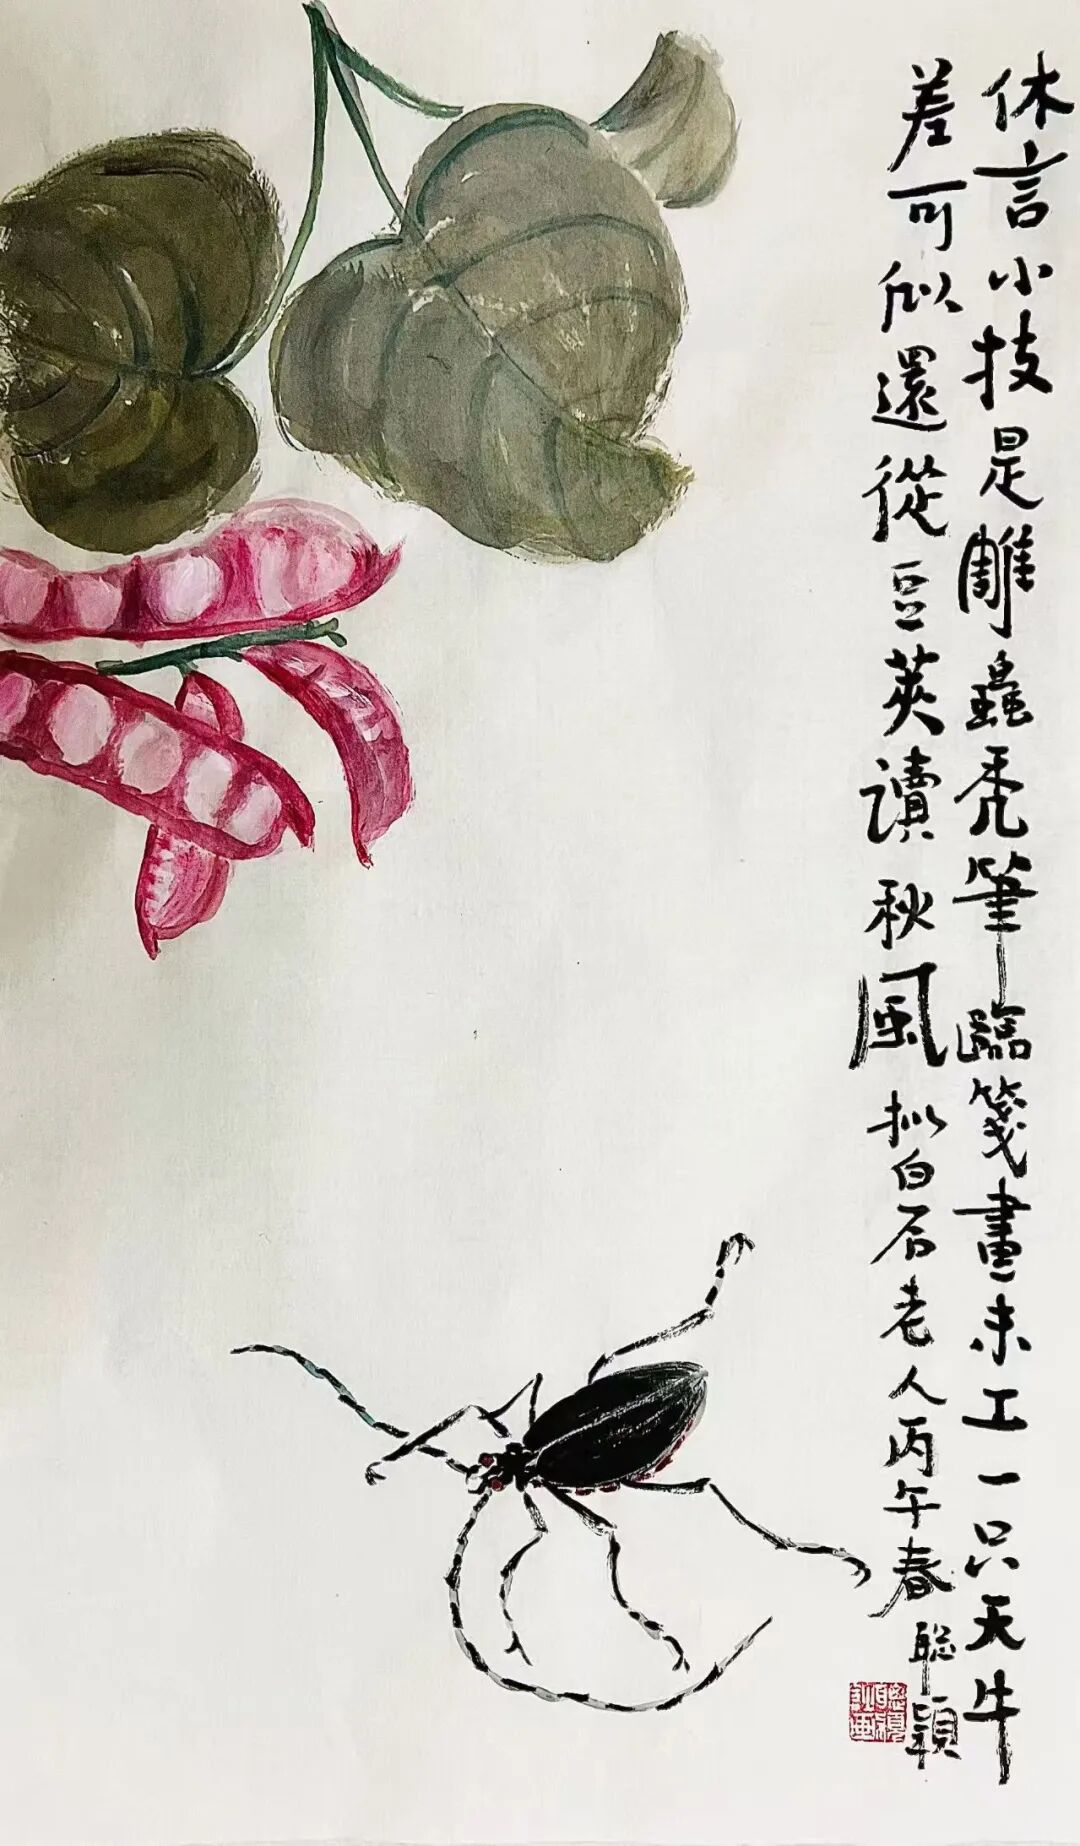 休言小技是雕蟲禿筆臨箋畫未工一只天牛
差可似還從豆莢讀秋風拟白石老人丙午春
聪穎